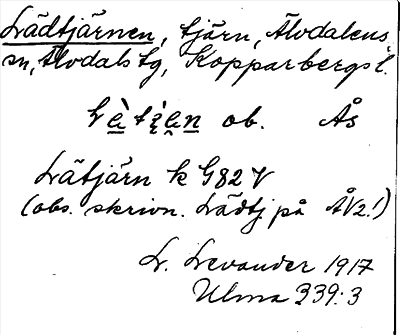 Lädtjärnen, tjärn, Älvdalens
sn, Älvdals tg, Kopparbergs l.
ob. Ås
Lätjärn k G82V
(obs. skrivn. Lädtj på ÅV2!)
L. Levander 1917
Ulma 339:3